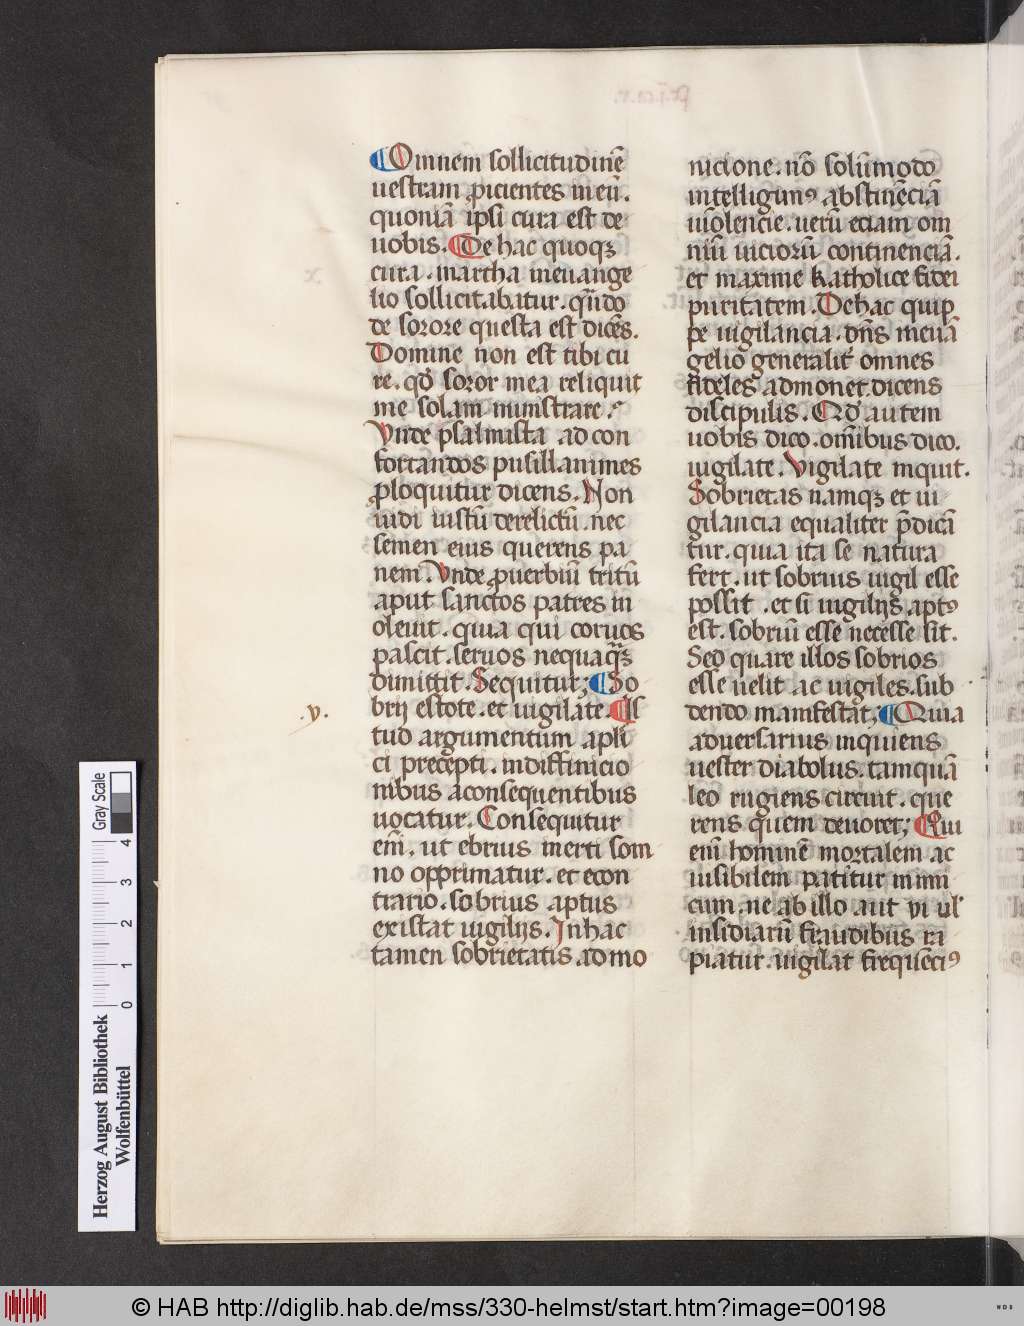 Omnem sollicitudinē
uestram ꝓicientes in eū.
quoniā ipsi cura est de
uobis. De hac quoqꝫ
cura. martha in euange
lio sollicitabatur. qn̄do
de sorore questa est dicēs.
Domine non est tibi cu
re. qđ soror mea reliquit
me solam ministrare.
Vnde psalmista ad con
fortandos pusillanimes
ꝓloquitur dicens. Non
uidi iustū derelictū. nec
semen eius querens pa
nem. Vnde ꝓuerbiū tritū
aput sanctos patres in
oleuit. quia qui coruos
pascit. seruos nequaqꝫ
dimittit. Sequitur; So
brij estote. et uigilate. Is
.v.
tud argumentum apl̄i
ci precepti. in diffinicio
nibus a consequentibus
uocatur. Consequitur
em̄. ut ebrius inerti som
no opprimatur. et econ
trario. sobrius aptus
existat uigilijs. In hac
tamen sobrietatis admo
nicione. nō solūmodo
intelligimꝰ abstinēciā
uiolencie. uerū eciam om
niū uiciorū continenciā.
et maxime katholice fidei
puritatem. De hac quip
pe uigilancia. dn̄s in euā
gelio generalit̄ omnes
fideles admonet dicens
discipulis. Qđ autem
uobis dico. om̄ibus dico.
uigilate. Vigilate inquit.
Sobrietas namqꝫ et ui
gilancia equaliter p̄dicā
tur. quia ita se natura
fert. ut sobrius uigil esse
possit. et si uigilijs aptꝰ
est. sobriū esse necesse sit.
Sed quare illos sobrios
esse uelit ac uigiles. sub
dendo manifestat; Quia
aduersarius inquiens
uester diabolus. tamquā
leo rugiens circuit. que
rens quem deuoret; Qui
em̄ hominē mortalem ac
uisibilem patitur inimi
cum. ne ab illo aut vi ul̄
insidiarū fraudibus ra
piatur. uigilat frequēciꝰ
Gray Scale
4
3
2
1
0
Herzog August Bibliothek
Wolfenbüttel
© HAB http://diglib.hab.de/mss/330-helmst/start.htm?image=00198